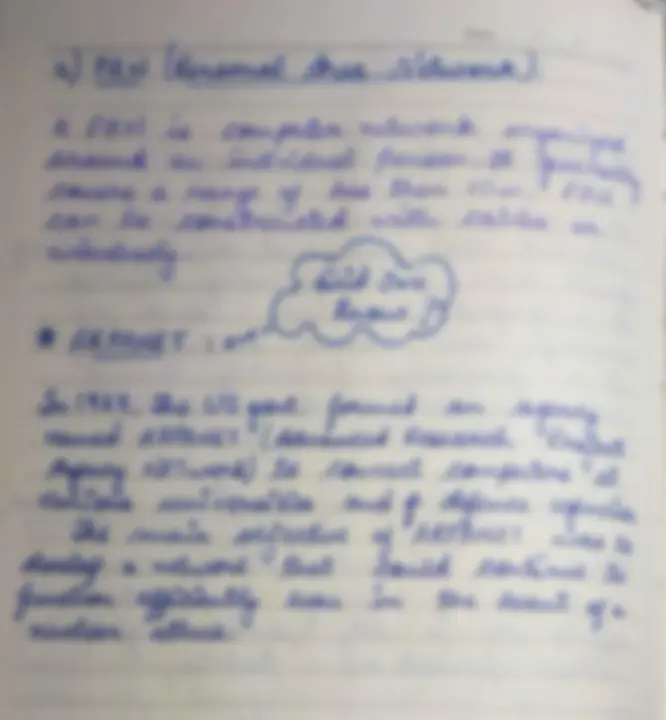 a) PAN (Personal Area Network)
A PAN is computer network organized
around an individual person. It
covers a range of less than 10 m. PAN
can be constructed with cables or
wirelessly.
Did You
Know
* ARPANET :
In 1969, the US govt. formed an agency
named ARPANET (Advanced Research Project
Agency NETwork) to connect computers at
various universities and defence agencies
The main objective of ARPANET was to
develop a network that could continue to
function efficiently even in the event of a
nuclear attack.